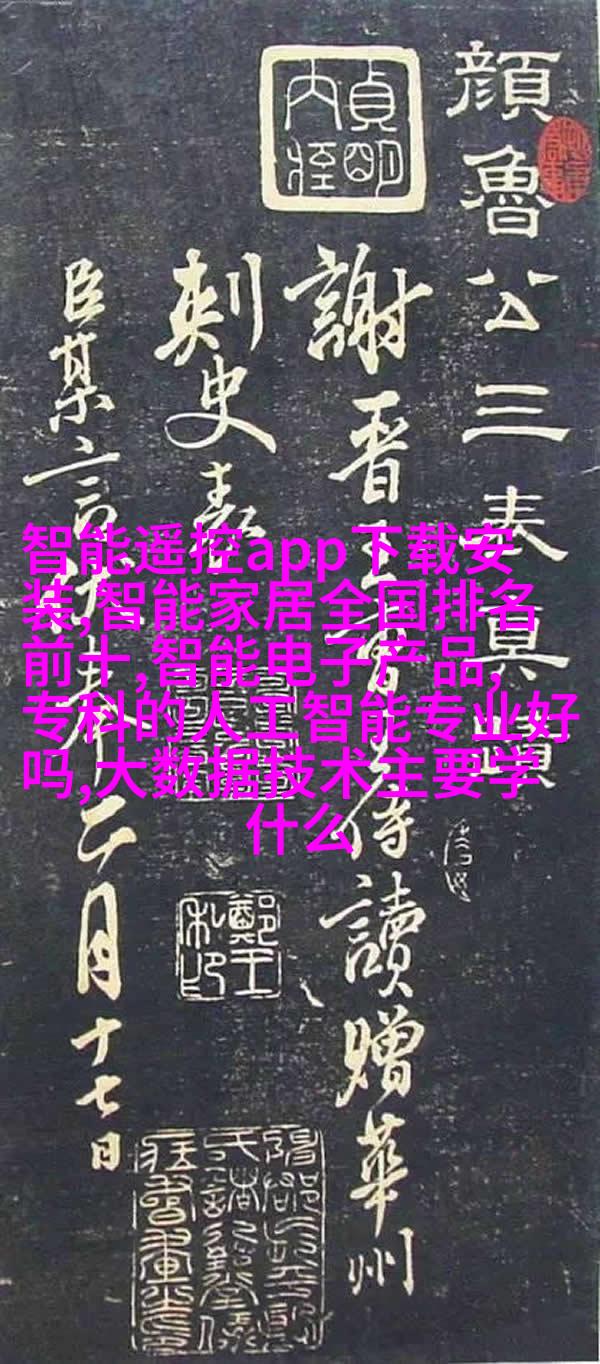 顏魯公三表真蹟
謝晉王侍讀贈華州
刺史表
臣某言伏奉二月十七日
貞明
鄭王
智能遥控app下载安
装,智能家居全国排名
前十,智能电子产品,
专科的人工智能专业好
吗,大数据技术主要学
什么